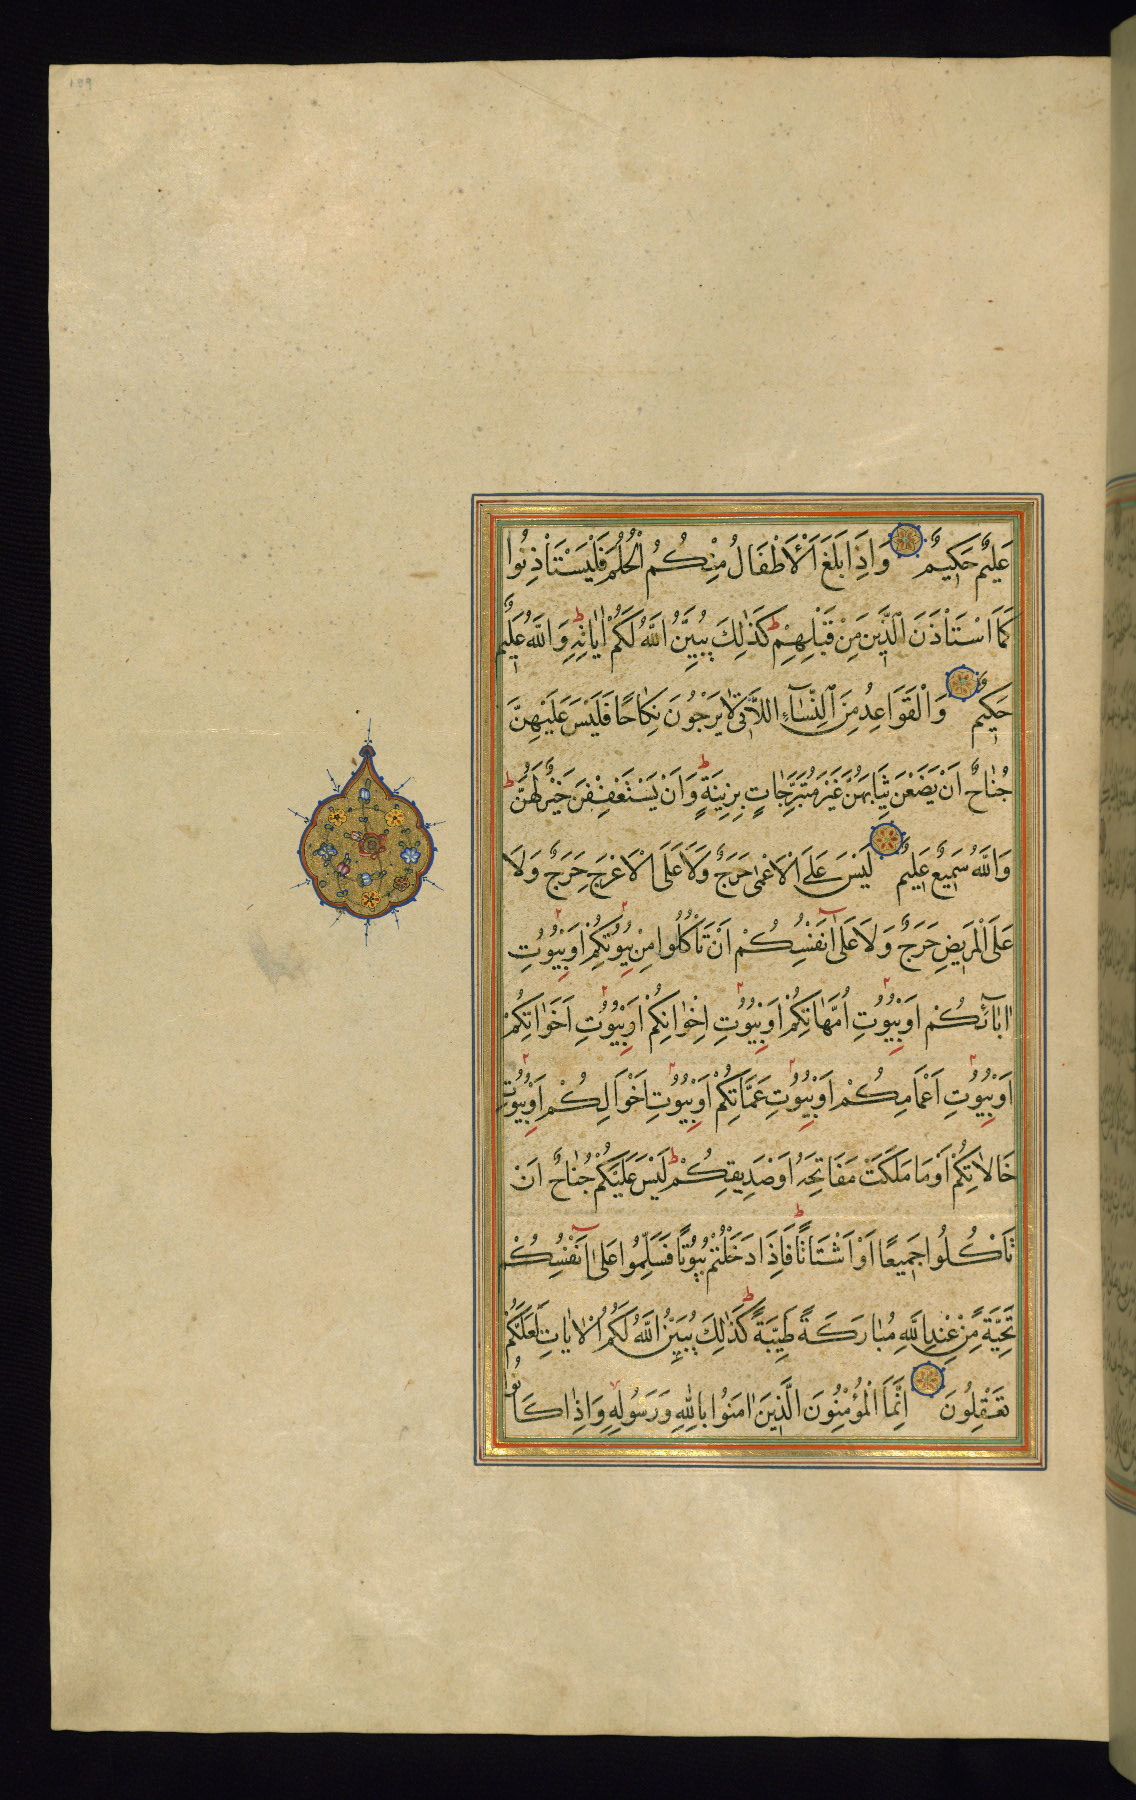 عَلِيمٌ حَكِيمٌ وَاِذَا بَلَغَ الْاَطْفَالُ مِنْكُمُ الْحُلُمَ فَلْيَسْتَاْذِنُوا
كَمَا اسْتَاْذَنَ الَّذِينَ مِنْ قَبْلِهِمْ ط كَذٰلِكَ يُبَيِّنُ اللَّهُ لَكُمْ اٰيَاتِهِ ط وَاللَّهُ عَلِيمٌ
حَكِيمٌ وَالْقَوَاعِدُ مِنَ النِّسَاءِ اللَّاتِي لَا يَرْجُونَ نِكَاحًا فَلَيْسَ عَلَيْهِنَّ
جُنَاحٌ اَنْ يَضَعْنَ ثِيَابَهُنَّ غَيْرَ مُتَبَرِّجَاتٍ بِزِينَةٍ ط وَاَنْ يَسْتَعْفِفْنَ خَيْرٌ لَهُنَّ ط
وَاللَّهُ سَمِيعٌ عَلِيمٌ لَيْسَ عَلَى الْاَعْمٰى حَرَجٌ وَلَا عَلَى الْاَعْرَجِ حَرَجٌ وَلَا
عَلَى الْمَرِيضِ حَرَجٌ وَلَا عَلٰى اَنْفُسِكُمْ اَنْ تَاْكُلُوا مِنْ بُيُوتِكُمْ اَوْ بُيُوتِ
اٰبَائِكُمْ اَوْ بُيُوتِ اُمَّهَاتِكُمْ اَوْ بُيُوتِ اِخْوَانِكُمْ اَوْ بُيُوتِ اَخَوَاتِكُمْ
اَوْ بُيُوتِ اَعْمَامِكُمْ اَوْ بُيُوتِ عَمَّاتِكُمْ اَوْ بُيُوتِ اَخْوَالِكُمْ اَوْ بُيُوتِ
خَالَاتِكُمْ اَوْ مَا مَلَكْتُمْ مَفَاتِحَهُ اَوْ صَدِيقِكُمْ ط لَيْسَ عَلَيْكُمْ جُنَاحٌ اَنْ
تَاْكُلُوا جَمِيعًا اَوْ اَشْتَاتًا ط فَاِذَا دَخَلْتُمْ بُيُوتًا فَسَلِّمُوا عَلٰى اَنْفُسِكُمْ
تَحِيَّةً مِنْ عِنْدِ اللَّهِ مُبَارَكَةً طَيِّبَةً ط كَذٰلِكَ يُبَيِّنُ اللَّهُ لَكُمُ الْاٰيَاتِ لَعَلَّكُمْ
تَعْقِلُونَ اِنَّمَا الْمُؤْمِنُونَ الَّذِينَ اٰمَنُوا بِاللَّهِ وَرَسُولِهِ وَاِذَا كَانُوا